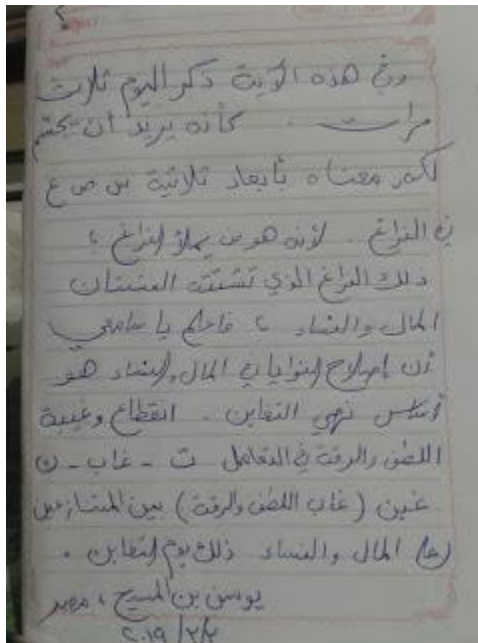 وفي هذه الآية ذكر اليوم ثلاث
مرات . كأنه يريد أن يجسّم
لكم معناه بأبعاد ثلاثية س ص ع
في الفراغ . لأنه هو من يملأ الفراغ ،
ذلك الفراغ الذي تشتته الفتنتان
المال والنساء ، فاعلم يا
أن إصلاح النوايا في المال والنساء هو
نهي التغابن . انقطاع وغيبة
اللطف والرقة في التعامل ت - غاب - ن
غبن (غاب اللطف والرقة) بين المتنازعين
على المال والنساء ذلك يوم التغابن .
يوسف بن المسيح ، مصر
٢٠١٩/٣/٢